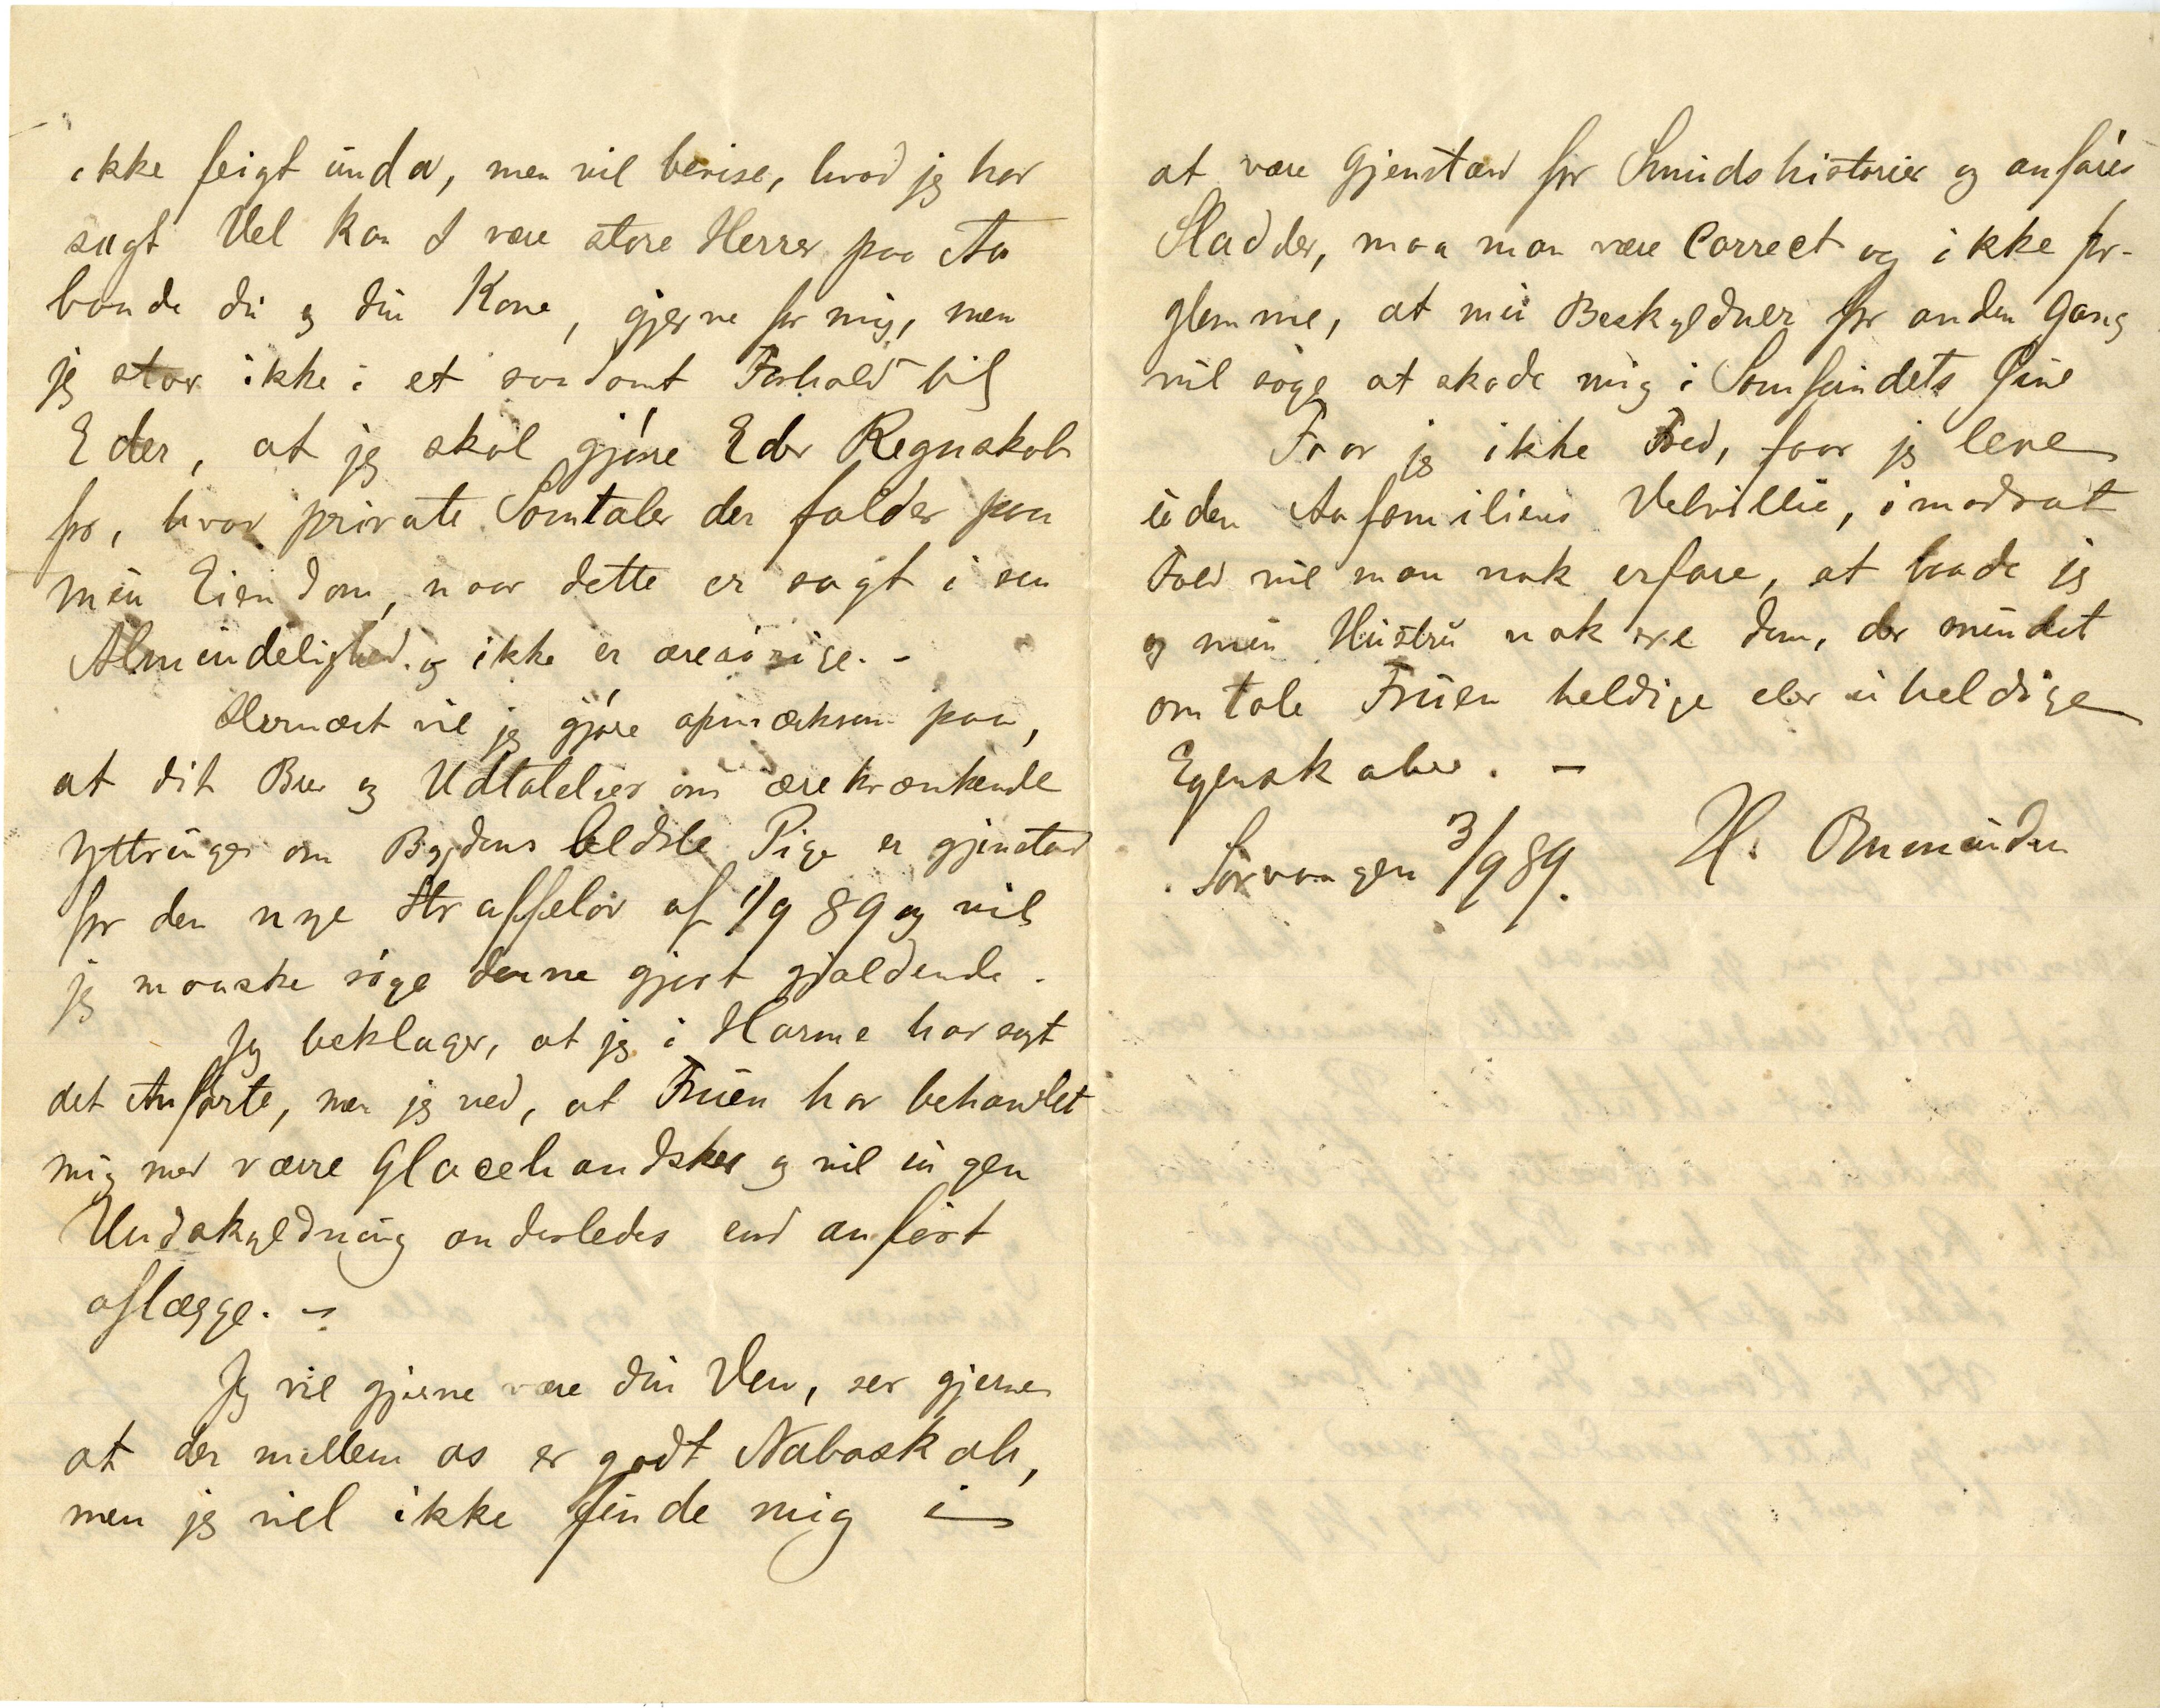 ikke feigt unda, men vil bevise, hvad jeg har
sagt Vel kan I være store Herrer paa Aa
baade du og din Kone, gjerne for mig, men
jeg staar ikke i et saadant Forhold til
Eder, at jeg skal gjøre Eder Regnskab
for, hvor private Samtaler der falder paa
min Eiendom, naar dette er sagt i sin
Almindelighed og ikke er ærerørige. -
Hernæst vil jeg gjøre opmærksom paa,
at dit Brev og Udtalelser om ærekrænkende
Yttringer om Bygdens Pige er gjenstand
for den nye Straffelov af 1/9 89 og vil
jeg maaske søge denne gjort gjældende.
Jeg beklager, at jeg i Harme har sagt
det Anførte, men jeg ved, at Fruen har behandlet
mig med værre Glacehandsker og vil ingen
Undskyldning anderledes end anført
aflægge. -
Jeg vil gjerne være din Ven, ser gjerne
at der mellem os er godt Naboskab,
men jeg vil ikke finde mig i
at være Gjenstand for Smudshistorier og anføres
Sladder, maa man være Correct og ikke for-
glemme, at min Beskyldner for anden Gang
vil søge at skade mig i Samfundets Øine
Faar jeg ikke Fred, faar jeg leve
uden Aafamiliens Velvillie, i modsat
Fald vil man nok erfare, at baade jeg
og min Hustru nok ere dem, der
omtale Fruen heldige eller uheldige
Egenskaber. -
Sørvangen 3/9 89. H.